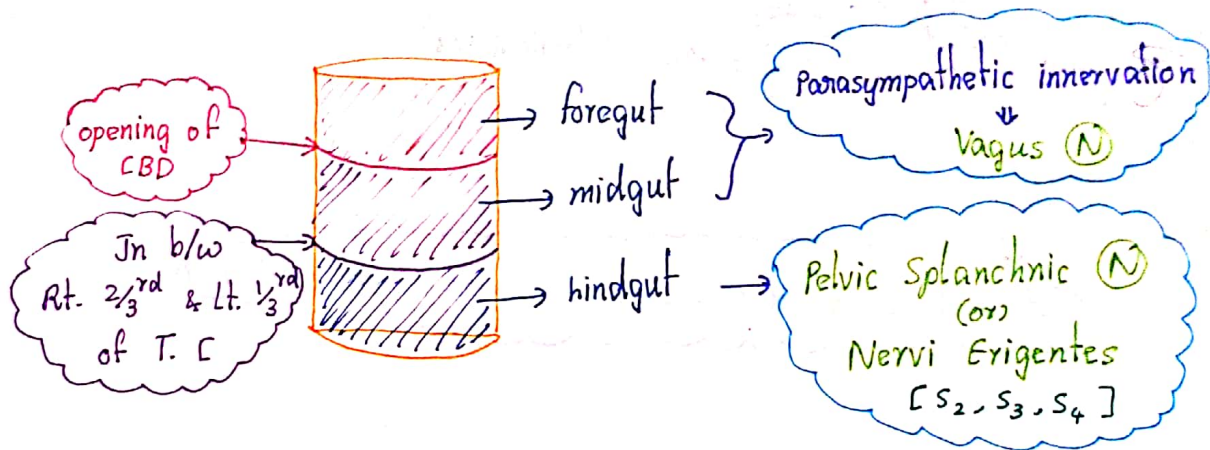 opening of
CBD
Jn b/w
Rt. 2/3rd & Lt. 1/3rd
of T. C
foregut
midgut
hindgut
Parasympathetic innervation
⇓
Vagus Ⓝ
Pelvic Splanchnic Ⓝ
(or)
Nervi Erigentes
[S2, S3, S4]